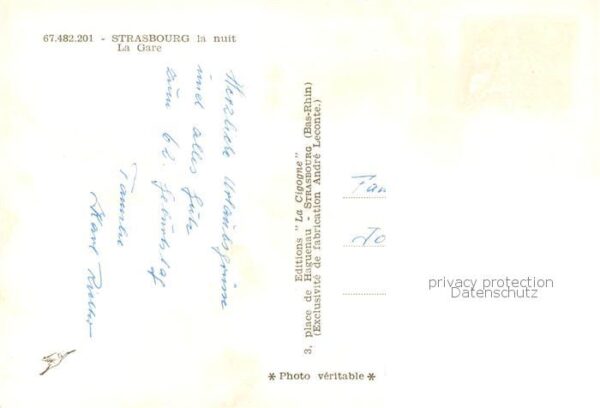 67.482.201 - STRASBOURG la nuit
La Gare
Herzliche Urlaubsgrüsse
und alles Gute
zum 62. Geburtstag
Familie
Karl
3, place de Haguenau - STRASBOURG (Bas-Rhin)
Editions "La Cigogne"
(Exclusivité de fabrication André Leconte.)
Fam
Jo
privacy protection
Datenschutz
* Photo véritable *